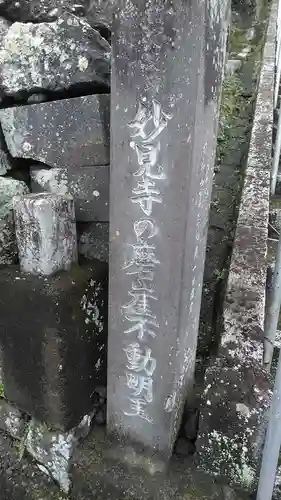 妙見寺の磨崖不動明王